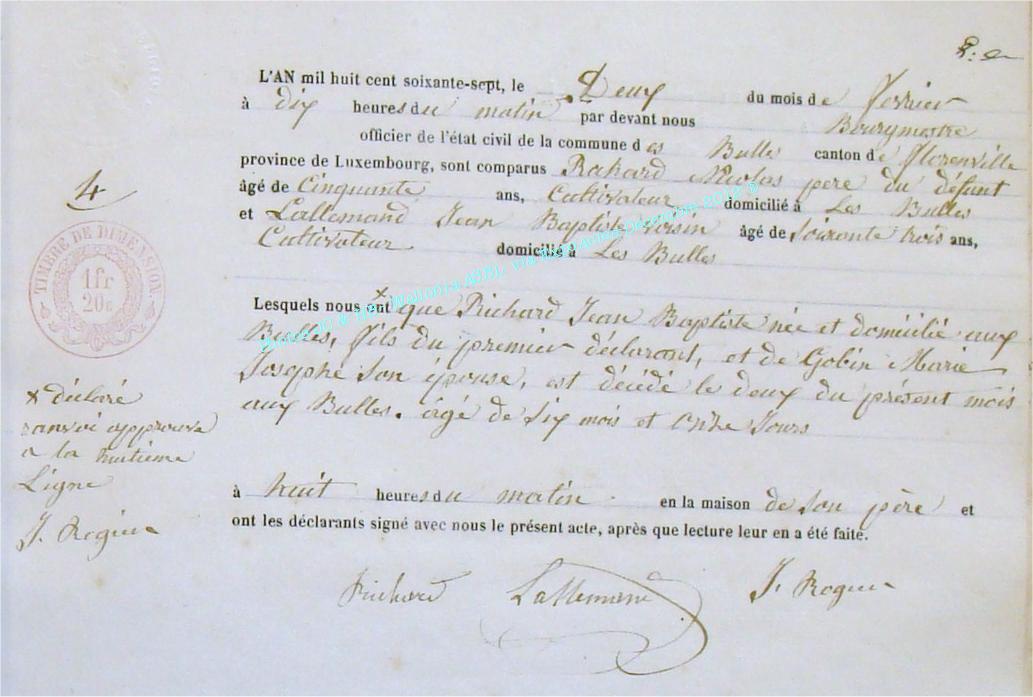 L'AN mil huit cent soixante-sept, le Deux du mois de fevrier
à dix heures du matin par devant nous Bourgmestre
officier de l'état civil de la commune des Bulles canton de florenville
province de Luxembourg, sont comparus Richard Nicolas père du défunt
âgé de Cinquante ans, Cultivateur domicilié à Les Bulles
et Lallemand Jean Baptiste voisin âgé de Soixante trois ans,
Cultivateur domicilié à Les Bulles
4
TIMBRE DE DIMENSION.
1 fr
20c
Lesquels nous ont x que Richard Jean Baptiste née et domicilié aux
Bulles, fils du premier déclarant, et de Gobin Marie
Josephe son épouse, est décédé le deux du présent mois
aux Bulles. âgé de Six mois et onze Jours
x déclaré
renvoi approuvé
a la huitieme
Ligne
J. Rogier
à huit heures du matin en la maison de son père et
ont les déclarants signé avec nous le présent acte, après que lecture leur en a été faite.
Richard Lallemand J. Rogier